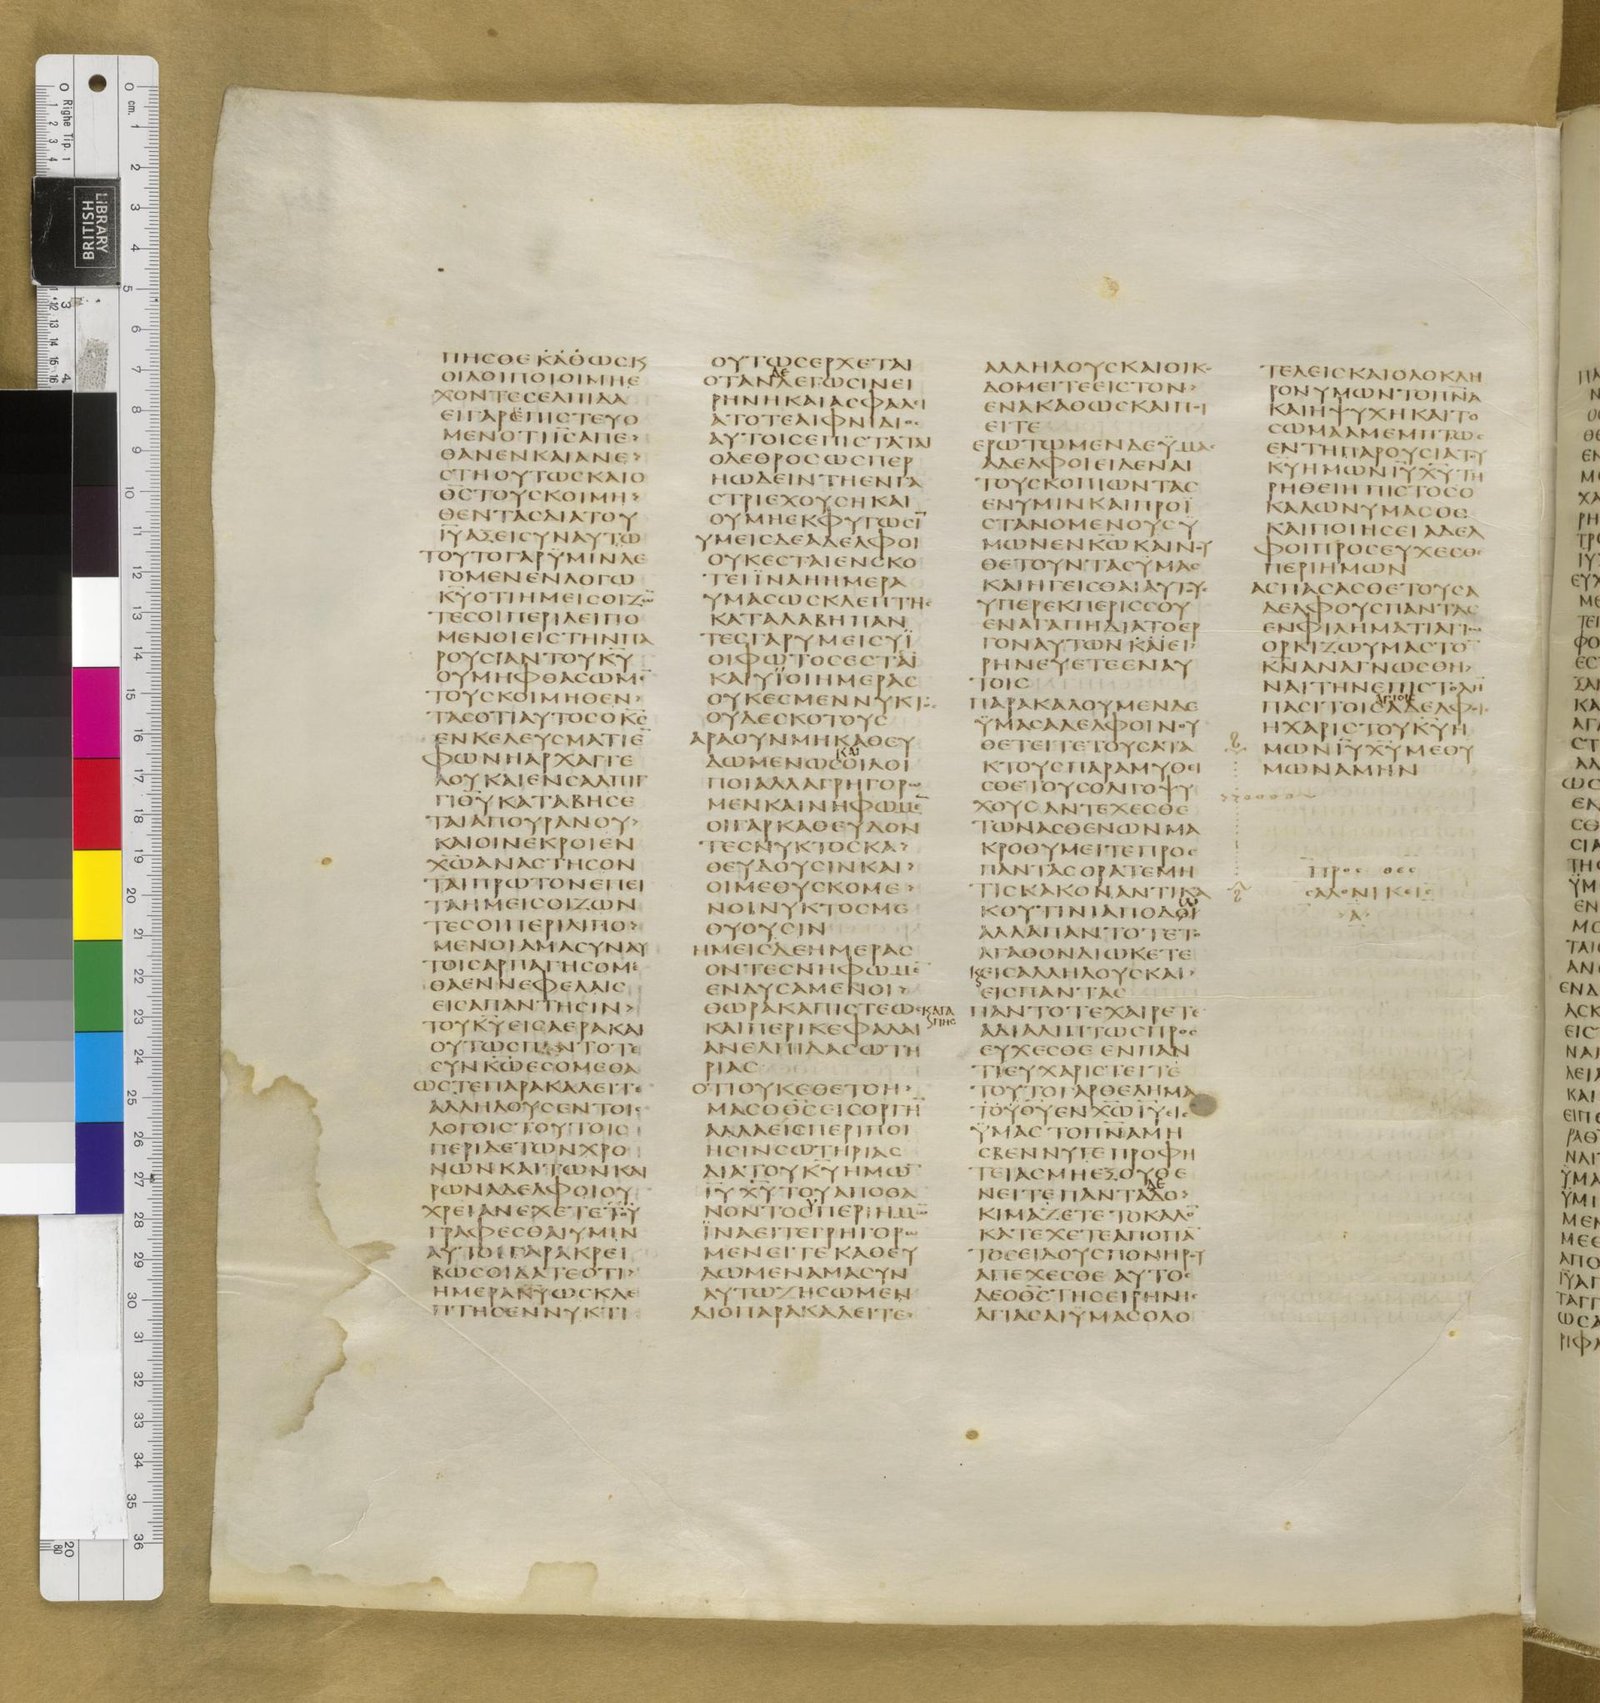 ΠΗϹΘΕΚΑΘΩϹΚ
ΟΙΛΟΙΠΟΙΟΙΜΗΕ
ΧΟΝΤΕϹΕΛΠΙΔΑ
ΕΙΓΑΡΕΠΙϹΤΕΥΟ
ΜΕΝΟΤΙΙ̅Ϲ̅ΑΠΕ>
ΘΑΝΕΝΚΑΙΑΝΕ>
ϹΤΗΟΥΤΩϹΚΑΙΟ
Θ̅Ϲ̅ΤΟΥϹΚΟΙΜΗ>
ΘΕΝΤΑϹΔΙΑΤΟΥ
Ι̅Υ̅ΑΞΕΙϹΥΝΑΥΤΩ
ΤΟΥΤΟΓΑΡΫΜΙΝΛΕ
ΓΟΜΕΝΕΝΛΟΓΩ
Κ̅Υ̅ΟΤΙΗΜΕΙϹΟΙΖΩ̅
ΤΕϹΟΙΠΕΡΙΛΕΙΠΟ
ΜΕΝΟΙΕΙϹΤΗΝΠΑ
ΡΟΥϹΙΑΝΤΟΥΚ̅Υ̅
ΟΥΜΗΦΘΑϹΩΜΕ̅
ΤΟΥϹΚΟΙΜΗΘΕΝ>
ΤΑϹΟΤΙΑΥΤΟϹΟΚ̅Ϲ̅
ΕΝΚΕΛΕΥϹΜΑΤΙΕ̅
ΦΩΝΗΑΡΧΑΓΓΕ
ΛΟΥΚΑΙΕΝϹΑΛΠΙΓ
ΓΙΘ̅Υ̅ΚΑΤΑΒΗϹΕ
ΤΑΙΑΠΟΥΡΑΝΟΥ>
ΚΑΙΟΙΝΕΚΡΟΙΕΝ
Χ̅Ω̅ΑΝΑϹΤΗϹΟΝ
ΤΑΙΠΡΩΤΟΝΕΠΕΙ
ΤΑΗΜΕΙϹΟΙΖΩΝ
ΤΕϹΟΙΠΕΡΙΛΙΠΟ>
ΜΕΝΟΙΑΜΑϹΥΝΑΥ
ΤΟΙϹΑΡΠΑΓΗϹΟΜΕ
ΘΑΕΝΝΕΦΕΛΑΙϹ
ΕΙϹΑΠΑΝΤΗϹΙΝ>
ΤΟΥΚ̅Υ̅ΕΙϹΑΕΡΑΚΑΙ
ΟΥΤΩϹΠΑΝΤΟΤΕ
ϹΥΝΚ̅Ω̅ΕϹΟΜΕΘΑ
ΩϹΤΕΠΑΡΑΚΑΛΕΙΤΕ
ΑΛΛΗΛΟΥϹΕΝΤΟΙϹ
ΛΟΓΟΙϹΤΟΥΤΟΙϹ
ΠΕΡΙΔΕΤΩΝΧΡΟ
ΝΩΝΚΑΙΤΩΝΚΑΙ
ΡΩΝΑΔΕΛΦΟΙΟΥ
ΧΡΕΙΑΝΕΧΕΤΕΤΟΥ
ΓΡΑΦΕϹΘΑΙΥΜΙΝ
ΑΥΤΟΙΓΑΡΑΚΡΕΙ
ΒΩϹΟΙΔΑΤΕΟΤΙ>
ΗΜΕΡΑΚ̅Υ̅ΩϹΚΛΕ
ΠΤΗϹΕΝΝΥΚΤΙ
ΟΥΤΩϹΕΡΧΕΤΑΙ
ΔΕ
ΟΤΑΝΛΕΓΩϹΙΝΕΙ
ΡΗΝΗΚΑΙΑϹΦΑΛΙ
ΑΤΟΤΕΑΙΦΝΙΔΙΟϹ
ΑΥΤΟΙϹΕΠΙϹΤΑΤΑΙ
ΟΛΕΘΡΟϹΩϹΠΕΡ
ΗΩΔΕΙΝΤΗΕΝΓΑ
ϹΤΡΙΕΧΟΥϹΗΚΑΙ
ΟΥΜΗΕΚΦΥΓΩϹΙ̅
ΥΜΕΙϹΔΕΑΔΕΛΦΟΙ
ΟΥΚΕϹΤΑΙΕΝϹΚΟ
ΤΕΙΪΝΑΗΗΜΕΡΑ
ΥΜΑϹΩϹΚΛΕΠΤΗϹ
ΚΑΤΑΛΑΒΗΠΑΝ
ΤΕϹΓΑΡΥΜΕΙϹΥΪ
ΟΙΦΩΤΟϹΕϹΤΑΙ
ΚΑΙΥΪΟΙΗΜΕΡΑϹ
ΟΥΚΕϹΜΕΝΝΥΚΤΟϹ
ΟΥΔΕϹΚΟΤΟΥϹ
ΑΡΑΟΥΝΜΗΚΑΘΕΥ
ΚΑΙ
ΔΩΜΕΝΩϹΟΙΛΟΙ
ΠΟΙΑΛΛΑΓΡΗΓΟΡΩ
ΜΕΝΚΑΙΝΗΦΩΜΕ̅
ΟΙΓΑΡΚΑΘΕΥΔΟΝ
ΤΕϹΝΥΚΤΟϹΚΑ>
ΘΕΥΔΟΥϹΙΝΚΑΙ>
ΟΙΜΕΘΥϹΚΟΜΕ>
ΝΟΙΝΥΚΤΟϹΜΕ
ΘΥΟΥϹΙΝ
ΗΜΕΙϹΔΕΗΜΕΡΑϹ
ΟΝΤΕϹΝΗΦΩΜΕ̅
ΕΝΔΥϹΑΜΕΝΟΙ>
ΘΩΡΑΚΑΠΙϹΤΕΩϹ
ΚΑΙΑΓΑΠΗϹ
ΚΑΙΠΕΡΙΚΕΦΑΛΑΙ
ΑΝΕΛΠΙΔΑϹΩΤΗ
ΡΙΑϹ
ΟΤΙΟΥΚΕΘΕΤΟΗ>
ΜΑϹΟΘ̅Ϲ̅ΕΙϹΟΡΓΗ̅
ΑΛΛΑΕΙϹΠΕΡΙΠΟΙ
ΗϹΙΝϹΩΤΗΡΙΑϹ
ΔΙΑΤΟΥΚ̅Υ̅ΗΜΩ̅
Ι̅Υ̅Χ̅Υ̅ΤΟΥΑΠΟΘΑ
ΝΟΝΤΟϹΠΕΡΙΗΜΩ̅
ΪΝΑΕΙΤΕΓΡΗΓΟΡΩ
ΜΕΝΕΙΤΕΚΑΘΕΥ
ΔΩΜΕΝΑΜΑϹΥΝ
ΑΥΤΩΖΗϹΩΜΕΝ
ΔΙΟΠΑΡΑΚΑΛΕΙΤΕ
ΑΛΛΗΛΟΥϹΚΑΙΟΙΚΟ
ΔΟΜΕΙΤΕΕΙϹΤΟΝ>
ΕΝΑΚΑΘΩϹΚΑΙΠΟΙ
ΕΙΤΕ
ΕΡΩΤΩΜΕΝΔΕΫΜΑϹ
ΑΔΕΛΦΟΙΕΙΔΕΝΑΙ
ΤΟΥϹΚΟΠΙΩΝΤΑϹ
ΕΝΥΜΙΝΚΑΙΠΡΟΪ
ϹΤΑΝΟΜΕΝΟΥϹΥ
ΜΩΝΕΝΚ̅Ω̅ΚΑΙΝΟΥ
ΘΕΤΟΥΝΤΑϹΫΜΑϹ
ΚΑΙΗΓΕΙϹΘΑΙΑΥΤΟΥϹ
ΥΠΕΡΕΚΠΕΡΙϹϹΟΥ
ΕΝΑΓΑΠΗΔΙΑΤΟΕΡ
ΓΟΝΑΥΤΩΝΚΑΙΕΙ>
ΡΗΝΕΥΕΤΕΕΝΑΥ
ΤΟΙϹ
ΠΑΡΑΚΑΛΟΥΜΕΝΔΕ
ΫΜΑϹΑΔΕΛΦΟΙΝΟΥ
ΘΕΤΕΙΤΕΤΟΥϹΑΤΑ
ΚΤΟΥϹΠΑΡΑΜΥΘΕΙ
ϹΘΕΤΟΥϹΟΛΙΓΟΨΥ
ΧΟΥϹΑΝΤΕΧΕϹΘΕ
ΤΩΝΑϹΘΕΝΩΝΜΑ
ΚΡΟΘΥΜΕΙΤΕΠΡΟϹ
ΠΑΝΤΑϹΟΡΑΤΕΜΗ
ΤΙϹΚΑΚΟΝΑΝΤΙΚΑ
ΚΟΥΤΙΝΙΑΠΟΔΟΙ
ΑΛΛΑΠΑΝΤΟΤΕΤΟ
ΑΓΑΘΟΝΔΙΩΚΕΤΕ
ΕΙϹΑΛΛΗΛΟΥϹΚΑΙ>
ΕΙϹΠΑΝΤΑϹ
ΠΑΝΤΟΤΕΧΑΙΡΕΤΕ
ΑΔΙΑΛΙΠΤΩϹΠΡΟϹ
ΕΥΧΕϹΘΕΕΝΠΑΝ
ΤΙΕΥΧΑΡΙϹΤΕΙΤΕ
ΤΟΥΤΟΓΑΡΘΕΛΗΜΑ
ΤΟΥΘ̅Υ̅ΕΝΧ̅Ω̅Ι̅Υ̅ΕΙϹ
ΫΜΑϹΤΟΠ̅Ν̅Α̅ΜΗ
ϹΒΕΝΝΥΤΕΠΡΟΦΗ
ΤΕΙΑϹΜΗΕΞΟΥΘΕ
ΔΕ
ΝΕΙΤΕΠΑΝΤΑΔΟ>
ΚΙΜΑΖΕΤΕΤΟΚΑΛΟ̅
ΚΑΤΕΧΕΤΕΑΠΟΠΑ̅
ΤΟϹΕΙΔΟΥϹΠΟΝΗΡΟΥ
ΑΠΕΧΕϹΘΕΑΥΤΟϹ
ΔΕΟΘ̅Ϲ̅ΤΗϹΕΙΡΗΝΗϹ
ΑΓΙΑϹΑΙΫΜΑϹΟΛΟ
ΤΕΛΕΙϹΚΑΙΟΛΟΚΛΗ
ΡΟΝΥΜΩΝΤΟΠ̅Ν̅Α̅
ΚΑΙΗΨΥΧΗΚΑΙΤΟ
ϹΩΜΑΑΜΕΜΠΤΩϹ
ΕΝΤΗΠΑΡΟΥϹΙΑΤΟΥ
Κ̅Υ̅ΗΜΩΝΙ̅Υ̅Χ̅Υ̅ΤΗ
ΡΗΘΕΙΗΠΙϹΤΟϹΟ
ΚΑΛΩΝΥΜΑϹΟϹ
ΚΑΙΠΟΙΗϹΕΙΑΔΕΛ
ΦΟΙΠΡΟϹΕΥΧΕϹΘΕ
ΠΕΡΙΗΜΩΝ
ΑϹΠΑϹΑϹΘΕΤΟΥϹΑ
ΔΕΛΦΟΥϹΠΑΝΤΑϹ
ΕΝΦΙΛΗΜΑΤΙΑΓΙΩ
ΟΡΚΙΖΩΥΜΑϹΤΟ̅
Κ̅Ν̅ΑΝΑΓΝΩϹΘΗ>
ΝΑΙΤΗΝΕΠΙϹΤΟΛΗ̅
ΑΓΙΟΙϹ
ΠΑϹΙΤΟΙϹΑΔΕΛΦΟΙϹ
ΗΧΑΡΙϹΤΟΥΚ̅Υ̅Η
ΜΩΝΙ̅Υ̅Χ̅Υ̅ΜΕΘΥ
ΜΩΝΑΜΗΝ
ΠΡΟϹ ΘΕϹ
ϹΑΛΟΝΙΚΕΙϹ
Α